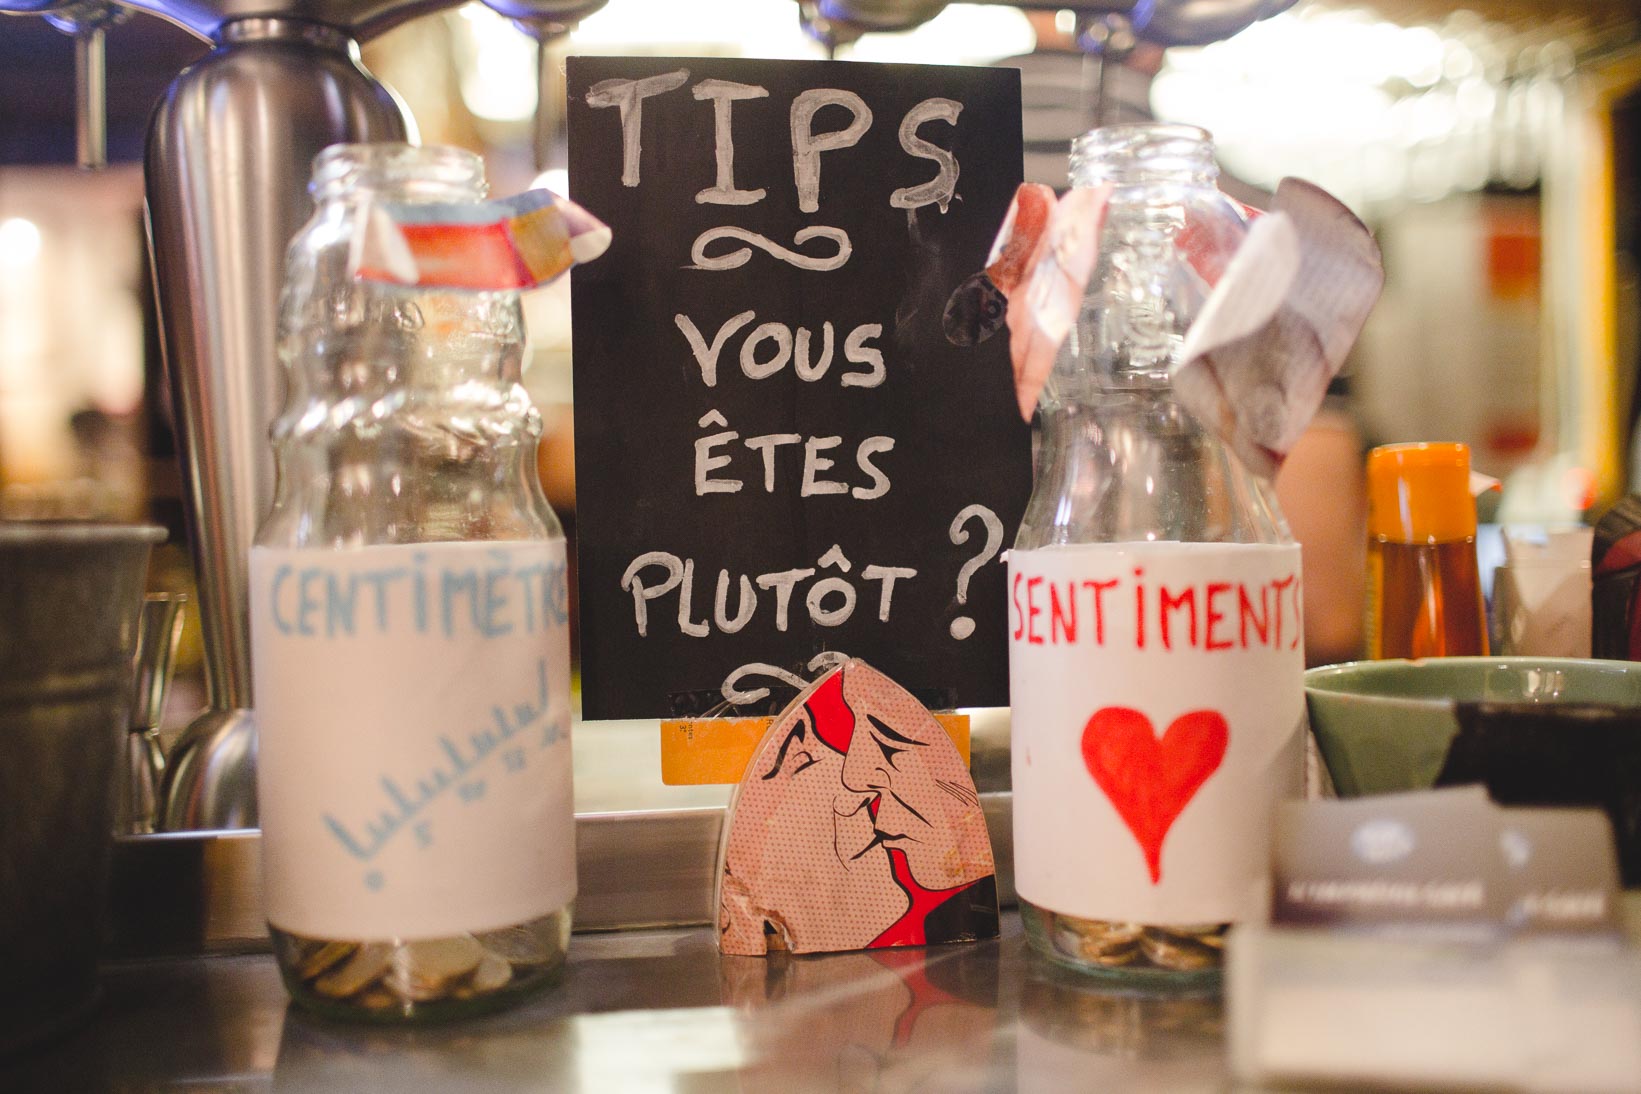 TIPS
VOUS
ÊTES
PLUTÔT ?
CENTIMÈTRE
SENTIMENTS